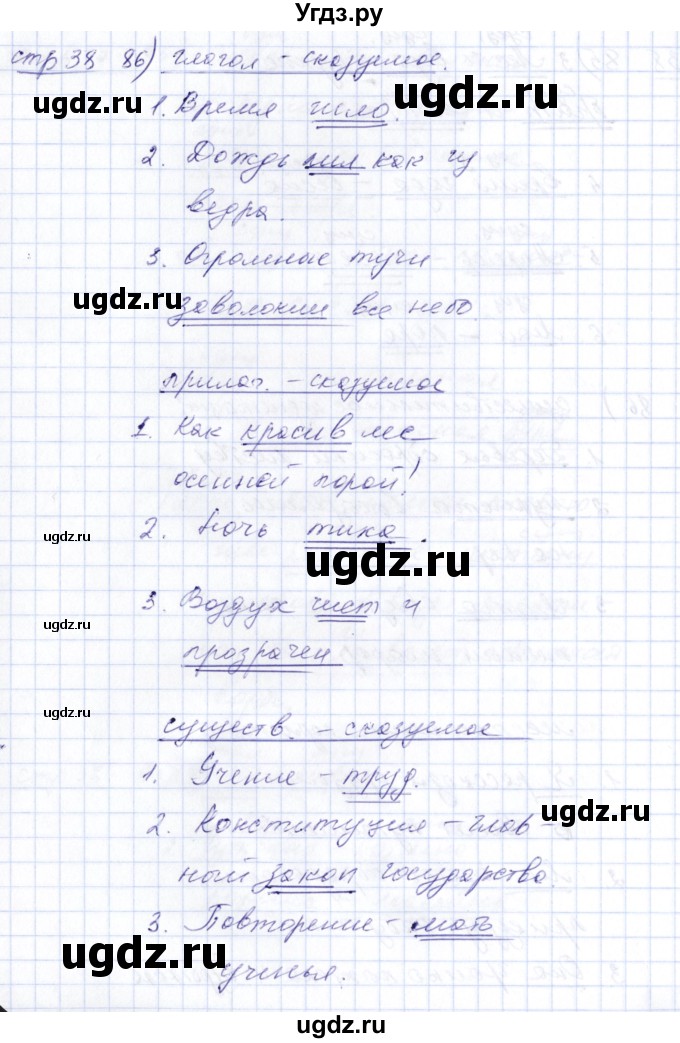 Угдз.ру
стр 38 86) глагол - сказуемое.
1. Время шло.
2. Дождь лил как из
ведра.
3. Огромные тучи
заволокли все небо.
прилаг. - сказуемое
1. Как красив лес
осенней порой!
2. Ночь тиха.
3. Воздух чист и
прозрачен
существ. - сказуемое
1. Учение - труд.
2. Конституция - глав-
ный закон государства.
3. Повторение - мать
ученья.
ugdz.ru
ugdz.ru
ugdz.ru
ugdz.ru
ugdz.ru
ugdz.ru
ugdz.ru
ugdz.ru
ugdz.ru
ugdz.ru
ugdz.ru